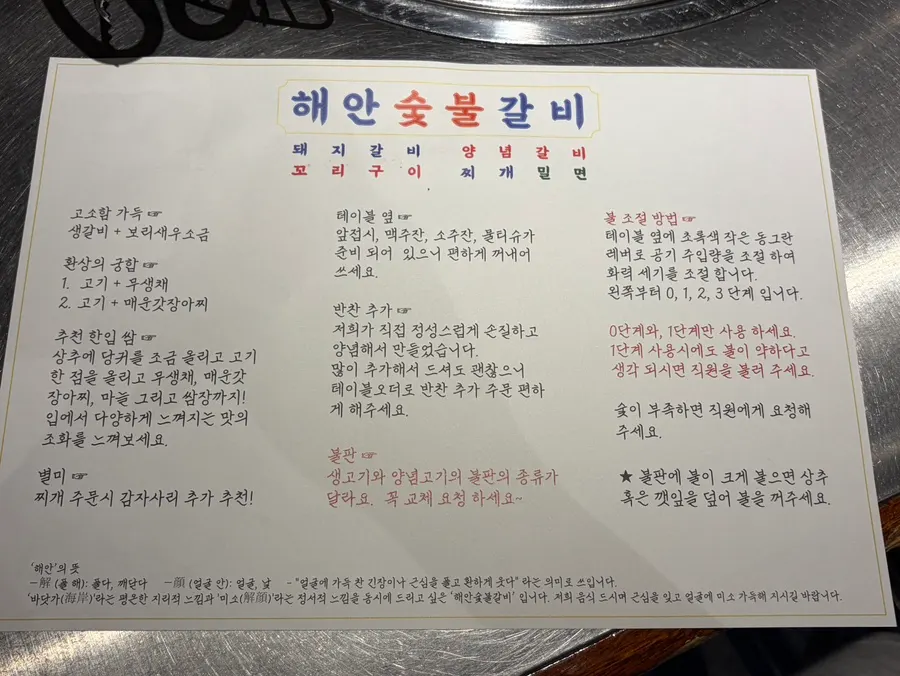 해안숯불갈비
돼지갈비 양념갈비
꼬리구이 찌개밀면
고소함 가득 ☞
생갈비 + 보리새우소금
환상의 궁합 ☞
1. 고기 + 무생채
2. 고기 + 매운갓장아찌
추천 한입 쌈 ☞
상추에 당커를 조금 올리고 고기
한 점을 올리고 무생채, 매운갓
장아찌, 마늘 그리고 쌈장까지!
입에서 다양하게 느껴지는 맛의
조화를 느껴보세요.
별미 ☞
찌개 주문시 감자사리 추가 추천!
테이블 옆 ☞
앞접시, 맥주잔, 소주잔, 물티슈가
준비 되어 있으니 편하게 꺼내어
쓰세요.
반찬 추가 ☞
저희가 직접 정성스럽게 손질하고
양념해서 만들었습니다.
많이 추가해서 드셔도 괜찮으니
테이블오더로 반찬 추가 주문 편하
게 해주세요.
불판 ☞
생고기와 양념고기의 불판의 종류가
달라요. 꼭 교체 요청 하세요~
불 조절 방법 ☞
테이블 옆에 초록색 작은 동그란
레버로 공기 주입량을 조절 하여
화력 세기를 조절 합니다.
왼쪽부터 0, 1, 2, 3 단계 입니다.
0단계와, 1단계만 사용 하세요.
1단계 사용시에도 불이 약하다고
생각 되시면 직원을 불러 주세요.
숯이 부족하면 직원에게 요청해
주세요.
★ 불판에 불이 크게 붙으면 상추
혹은 깻잎을 덮어 불을 꺼주세요.
'해안'의 뜻
-解 (풀 해): 풀다, 깨닫다 -顔 (얼굴 안): 얼굴, 낯 - "얼굴에 가득 찬 긴장이나 근심을 풀고 환하게 웃다" 라는 의미로 쓰입니다.
'바닷가(海岸)'라는 평온한 지리적 느낌과 '미소(解顔)'라는 정서적 느낌을 동시에 드리고 싶은 '해안숯불갈비' 입니다. 저희 음식 드시며 근심을 잊고 얼굴에 미소 가득해 지시길 바랍니다.